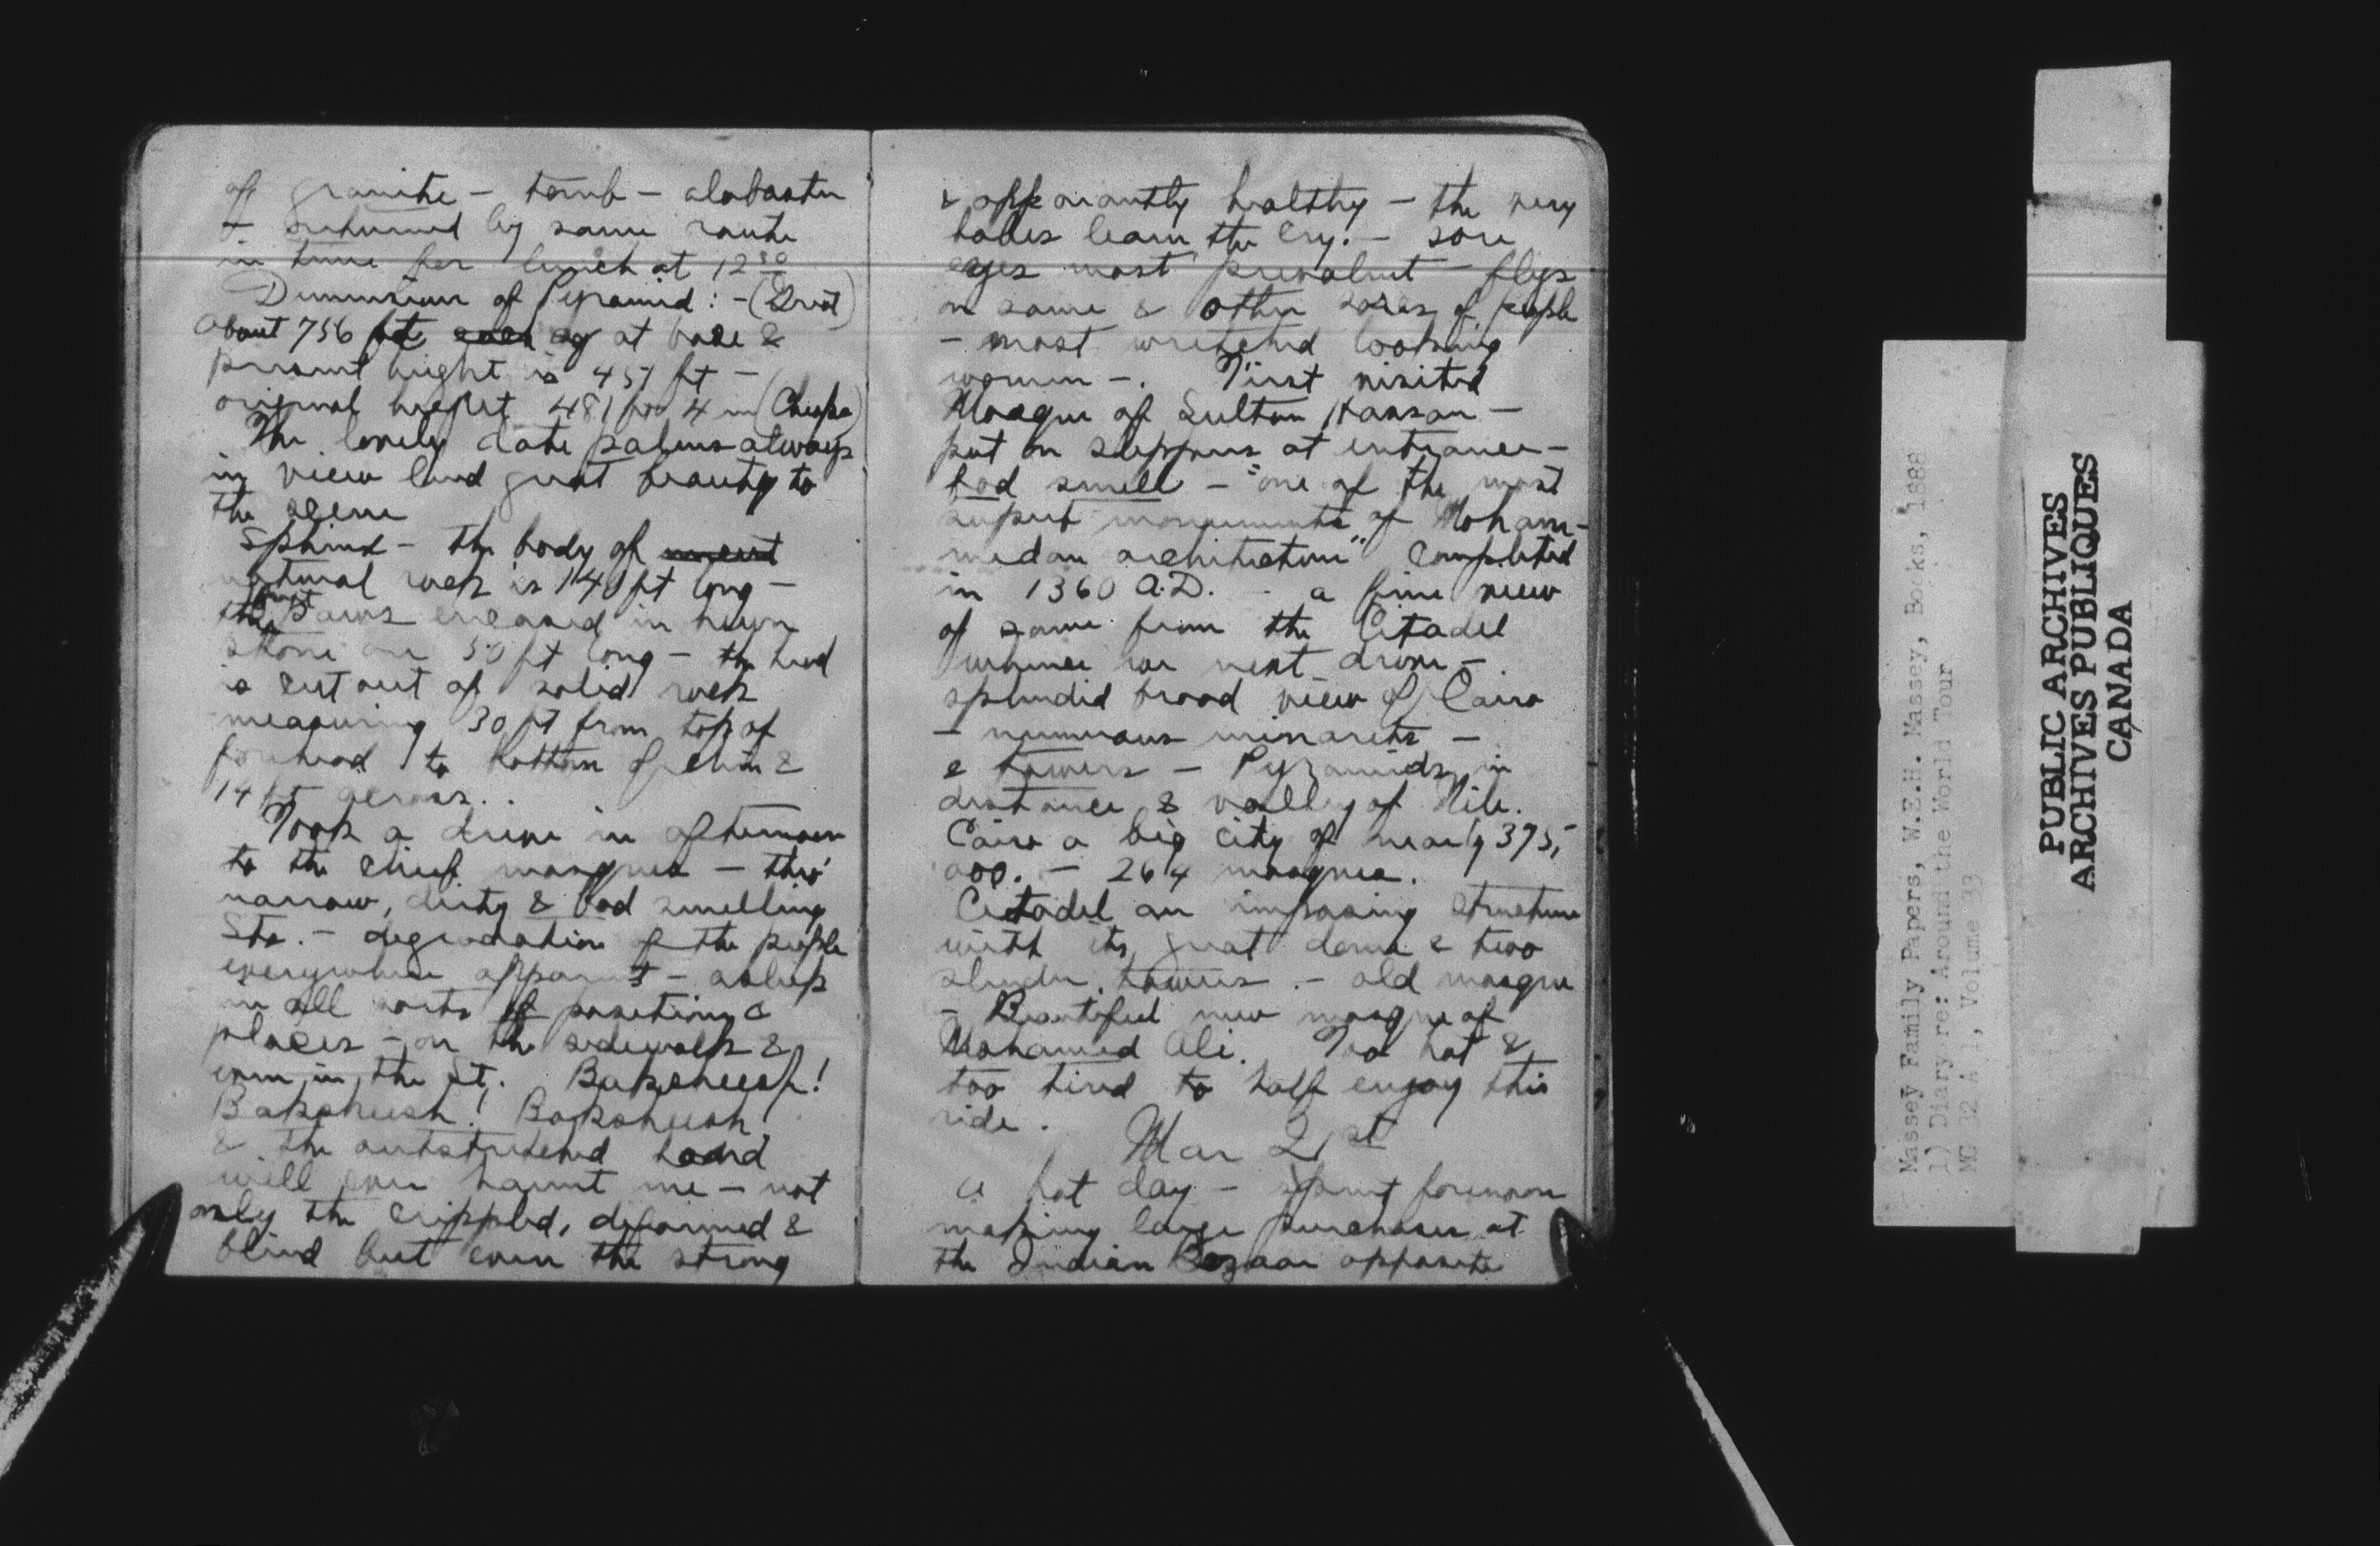 of granite - tomb - alabaster
+ returned by same route
in time for lunch at 12 30
Dimension of Pyramid: - (Great)
about 756 ft at base &
present hight is 451 ft -
original height 481 ft 4 in (Cheops)
The lovely date palms always
in view lend great beauty to
the scene
Sphinx - the body of
natural rock is 140 ft long -
the front paws encased in hewn
stone are 50 ft long - the head
is cut out of solid rock
measuring 30 ft from top of
forehead to bottom of chin &
14 ft across.
Took a drive in afternoon
to the chief mosques - thro'
narrow, dirty & bad smelling
Sts. - degradation of the people
everywhere apparent - asleep
in all sorts of positions &
places - on the sidewalk &
even in the St. Baksheesh!
Baksheesh! Baksheesh
& the outstretched hand
will ever haunt me - not
only the crippled, deformed &
blind but even the strong
& apparantly healthy - the very
babes learn the cry. - sore
eyes most prevalent - flys
on same & other sores of people
- most wretched looking
women -. First visited
Mosque of Sultan Hassan -
put on slippers at entrance -
bad smell - "one of the most
superb monuments of Moham-
medan architecture" completed
in 1360 A.D. - a fine view
of same from the Citadel
whence we next drove -
splendid broad view of Cairo
- numerous minarets -
& towers - Pyramids in
distance & valley of Nile.
Cairo a big city of nearly 375,
000. - 264 mosques.
Citadel an imposing structure
with its great dome & two
slender towers. - old mosque
- Beautiful new mosque of
Mohamed Ali. Too hot &
too tired to half enjoy this
ride.
Mar 21st
A hot day - spent forenoon
making large purchases at
the Indian Bazaar opposite
Massey Family Papers, W.E.H. Massey, Books, 1888
1) Diary re: Around the World Tour
MG 32 A 1, Volume 33
PUBLIC ARCHIVES
ARCHIVES PUBLIQUES
CANADA